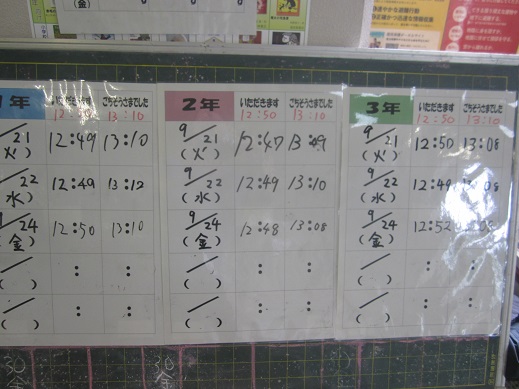 (金)
1年 いただきます ごちそうさまでした
12:50 13:10
9/21 (火) 12:49 13:10
9/22 (水) 12:49 13:12
9/24 (金) 12:50 13:10
/ ( ) : :
/ ( ) : :
2年 いただきます ごちそうさまでした
12:50 13:10
9/21 (火) 12:47 13:09
9/22 (水) 12:49 13:10
9/24 (金) 12:48 13:08
/ ( ) : :
/ ( ) : :
3年 いただきます ごちそうさまでした
12:50 13:10
9/21 (火) 12:50 13:08
9/22 (水) 12:49 13:08
9/24 (金) 12:52 13:08
/ ( ) : :
/ ( ) : :
30 金
30 金